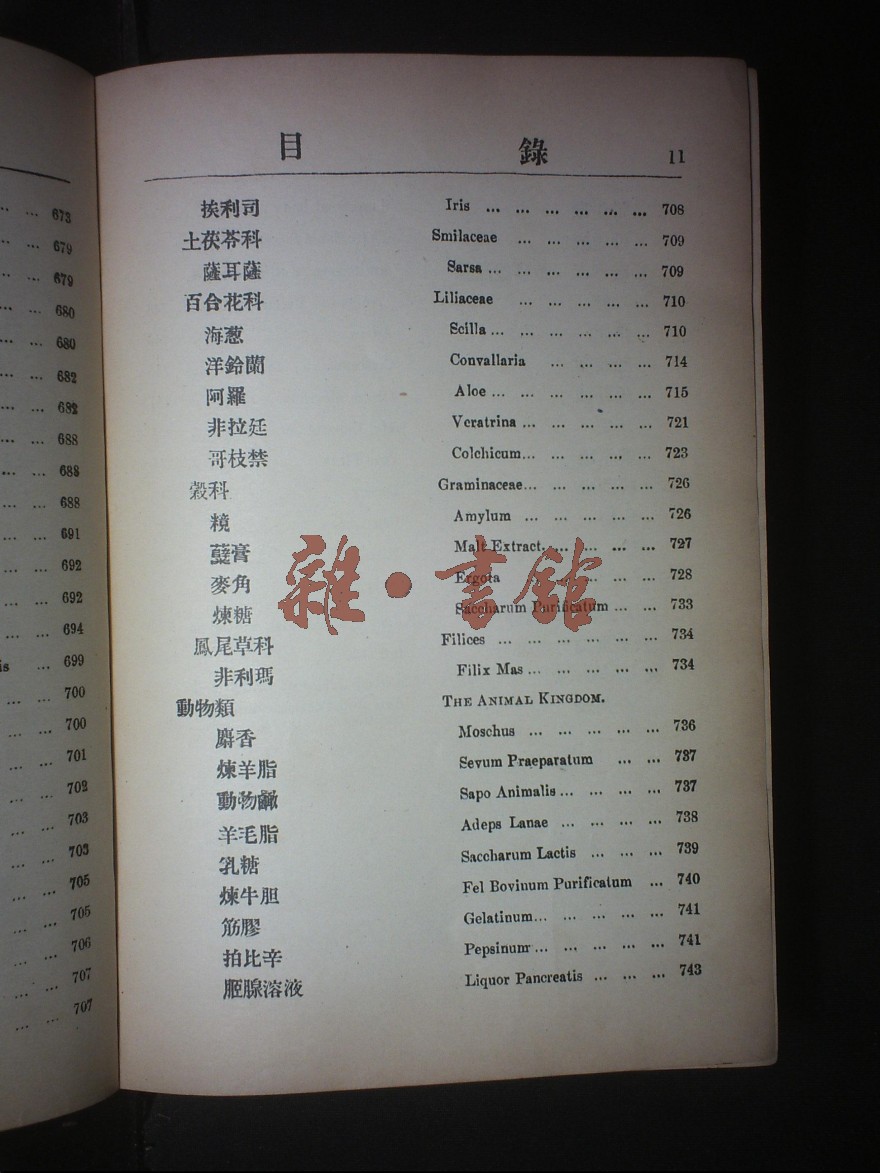 673
679
679
680
680
682
682
688
688
688
691
692
692
694
is ... 699
700
700
701
702
703
703
705
705
706
707
707
目 錄 11
挨利司 Iris ... ... ... ... ... ... 708
土茯苓科 Smilaceae ... ... ... ... ... 709
薩耳薩 Sarsa ... ... ... ... ... ... 709
百合花科 Liliaceae ... ... ... ... ... 710
海葱 Scilla ... ... ... ... ... ... 710
洋鈴蘭 Convallaria ... ... ... ... 714
阿羅 Aloe ... ... ... ... ... ... 715
非拉廷 Veratrina ... ... ... ... ... 721
哥枝禁 Colchicum... ... ... ... ... 723
穀科 Graminaceae... ... ... ... ... 726
Amylum ... ... ... ... ... 726
膏 Malt Extract... ... ... ... ... 727
麥角 Ergota ... ... ... ... 728
煉糖 Saccharum Purificatum ... ... 733
鳳尾草科 Filices ... ... ... ... ... ... 734
非利瑪 Filix Mas ... ... ... ... ... 734
動物類 THE ANIMAL KINGDOM.
麝香 Moschus ... ... ... ... ... 736
煉羊脂 Sevum Praeparatum ... ... 737
動物鹼 Sapo Animalis ... ... ... ... 737
羊毛脂 Adeps Lanae ... ... ... ... 738
乳糖 Saccharum Lactis ... ... ... 739
煉牛胆 Fel Bovinum Purificatum ... 740
筋膠 Gelatinum... ... ... ... ... 741
拍比辛 Pepsinum ... ... ... ... ... 741
腺溶液 Liquor Pancreatis ... ... ... 743
雜·書館